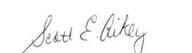 Scott E. Aikey